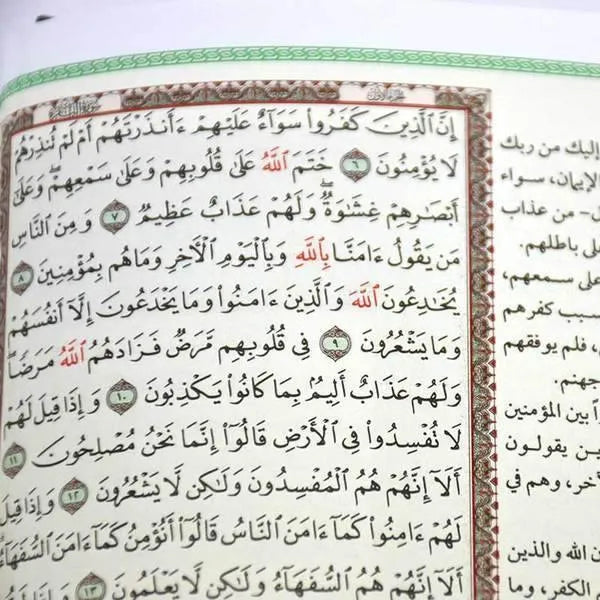 سورة البقرة
إِنَّ الَّذِينَ كَفَرُوا سَوَاءٌ عَلَيْهِمْ ءَأَنذَرْتَهُمْ أَمْ لَمْ تُنذِرْهُمْ
لَا يُؤْمِنُونَ ٦ خَتَمَ اللَّهُ عَلَىٰ قُلُوبِهِمْ وَعَلَىٰ سَمْعِهِمْ ۖ وَعَلَىٰ
أَبْصَارِهِمْ غِشَاوَةٌ ۖ وَلَهُمْ عَذَابٌ عَظِيمٌ ٧ وَمِنَ النَّاسِ
مَن يَقُولُ ءَامَنَّا بِاللَّهِ وَبِالْيَوْمِ الْآخِرِ وَمَا هُم بِمُؤْمِنِينَ ٨
يُخَادِعُونَ اللَّهَ وَالَّذِينَ ءَامَنُوا وَمَا يَخْدَعُونَ إِلَّا أَنفُسَهُمْ
وَمَا يَشْعُرُونَ ٩ فِي قُلُوبِهِم مَّرَضٌ فَزَادَهُمُ اللَّهُ مَرَضًا
وَلَهُمْ عَذَابٌ أَلِيمٌ بِمَا كَانُوا يَكْذِبُونَ ١٠ وَإِذَا قِيلَ لَهُمْ
لَا تُفْسِدُوا فِي الْأَرْضِ قَالُوا إِنَّمَا نَحْنُ مُصْلِحُونَ ١١
أَلَا إِنَّهُمْ هُمُ الْمُفْسِدُونَ وَلَٰكِن لَّا يَشْعُرُونَ ١٢ وَإِذَا قِيلَ
لَهُمْ ءَامِنُوا كَمَا ءَامَنَ النَّاسُ قَالُوا أَنُؤْمِنُ كَمَا ءَامَنَ السُّفَهَاءُ
أَلَا إِنَّهُمْ هُمُ السُّفَهَاءُ وَلَٰكِن لَّا يَعْلَمُونَ ١٣ وَإِذَا
إليك من ربك
الإيمان، سواء
من عذاب
على باطلهم.
على سمعهم،
سبب كفرهم
فلم يوفقهم
جهنم.
بين المؤمنين
يقولون
وهم في
الله والذين
الكفر، وما